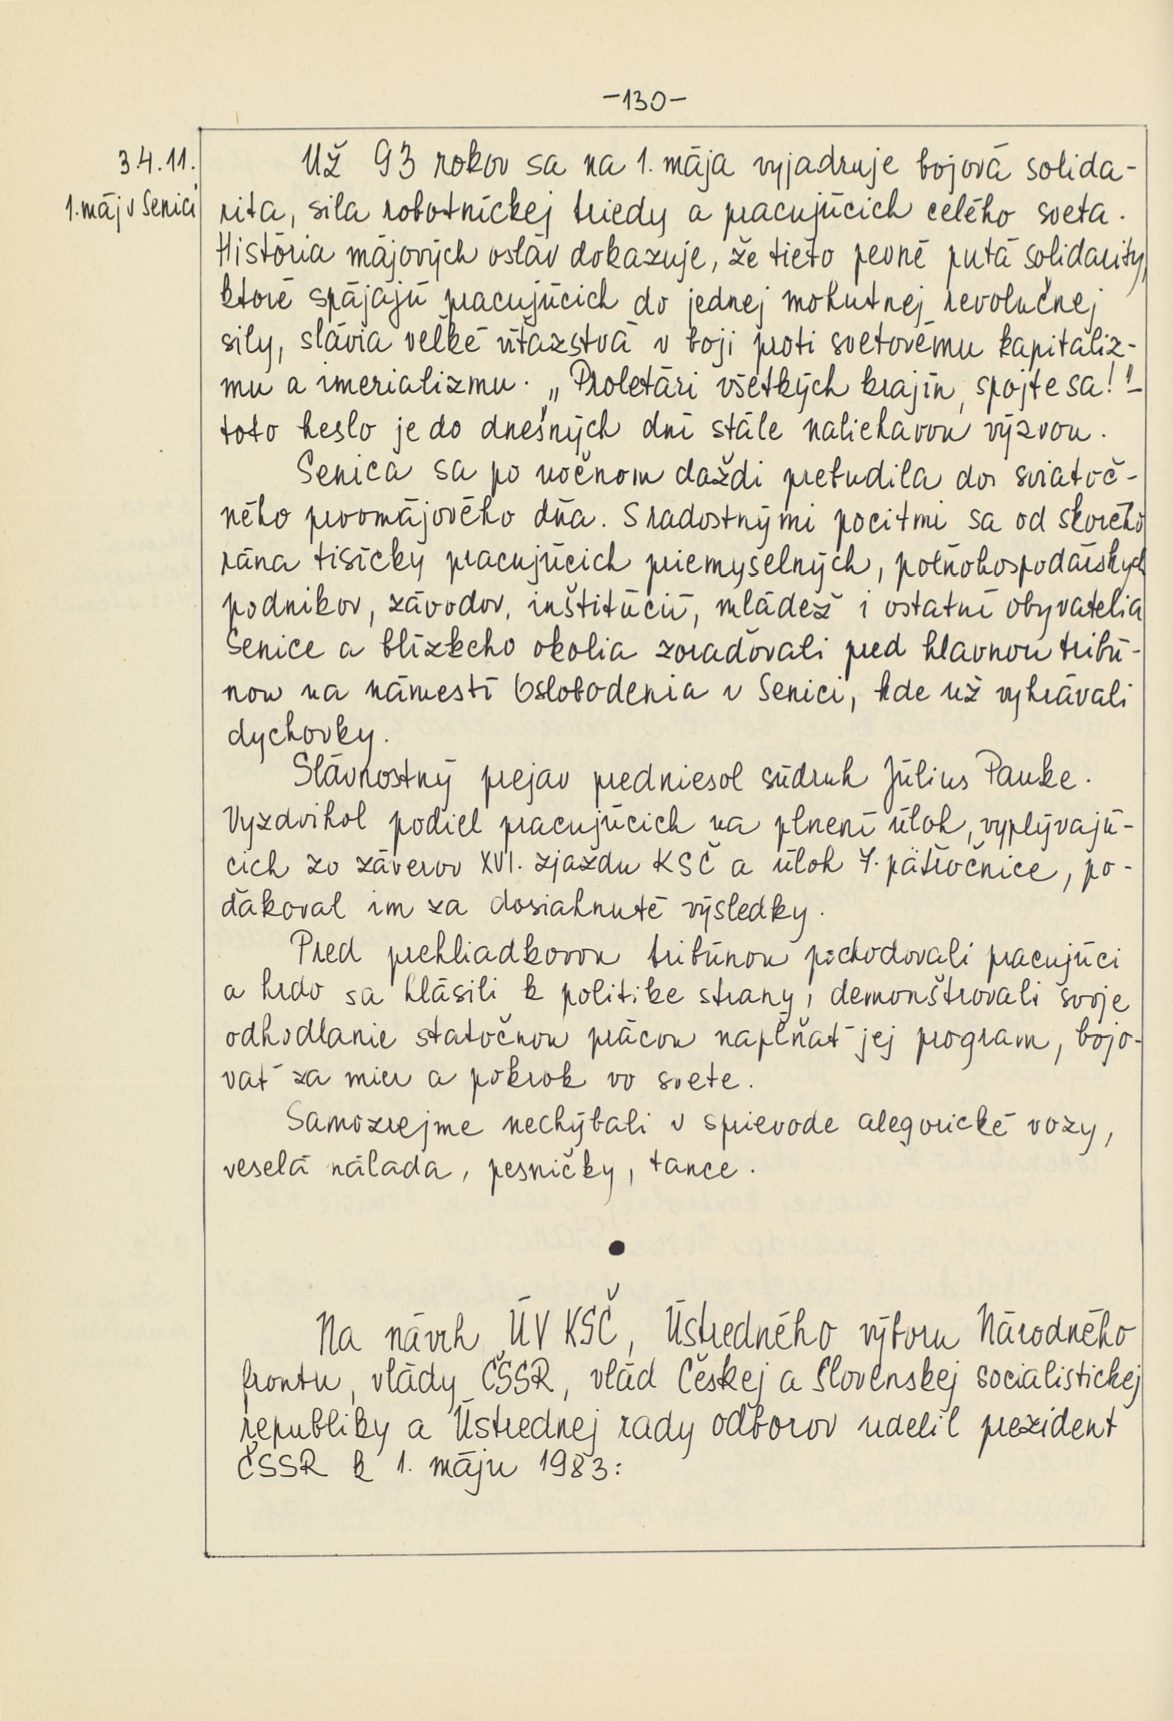 -130-
3.4.11.
1. máj v Senici
Už 93 rokov sa na 1. mája vyjadruje bojová solida-
rita, sila robotníckej triedy a pracujúcich celého sveta.
História májových osláv dokazuje, že tieto pevné putá solidarity,
ktoré spájajú pracujúcich do jednej mohutnej revolučnej
sily, slávia veľké víťazstvá v boji proti svetovému kapitaliz-
mu a imerializmu. „Proletári všetkých krajín, spojte sa!"-
toto heslo je do dnešných dní stále naliehavou výzvou.
Senica sa po nočnom daždi prebudila do sviatoč-
ného prvomájového dňa. S radostnými pocitmi sa od skorého
rána tisícky pracujúcich priemyselných, poľnohospodárskych
podnikov, závodov, inštitúcií, mládež i ostatní obyvatelia
Senice a blízkeho okolia zoraďovali pred hlavnou tribú-
nou na námestí Oslobodenia v Senici, kde už vyhrávali
dychovky.
Slávnostný prejav predniesol súdruh Július Pauke.
Vyzdvihol podiel pracujúcich na plnení úloh, vyplývajú-
cich zo záverov XVI. zjazdu KSČ a úloh 7. päťročnice, po-
ďakoval im za dosiahnuté výsledky.
Pred prehliadkovou tribúnou pochodovali pracujúci
a hrdo sa hlásili k politike strany, demonštrovali svoje
odhodlanie statočnou prácou napĺňať jej program, bojo-
vať za mier a pokrok vo svete.
Samozrejme nechýbali v sprievode alegorické vozy,
veselá nálada, pesničky, tance.
Na návrh ÚV KSČ, Ústredného výboru Národného
frontu, vlády ČSSR, vlád Českej a Slovenskej socialistickej
republiky a Ústrednej rady odborov udelil prezident
ČSSR k 1. máju 1983: